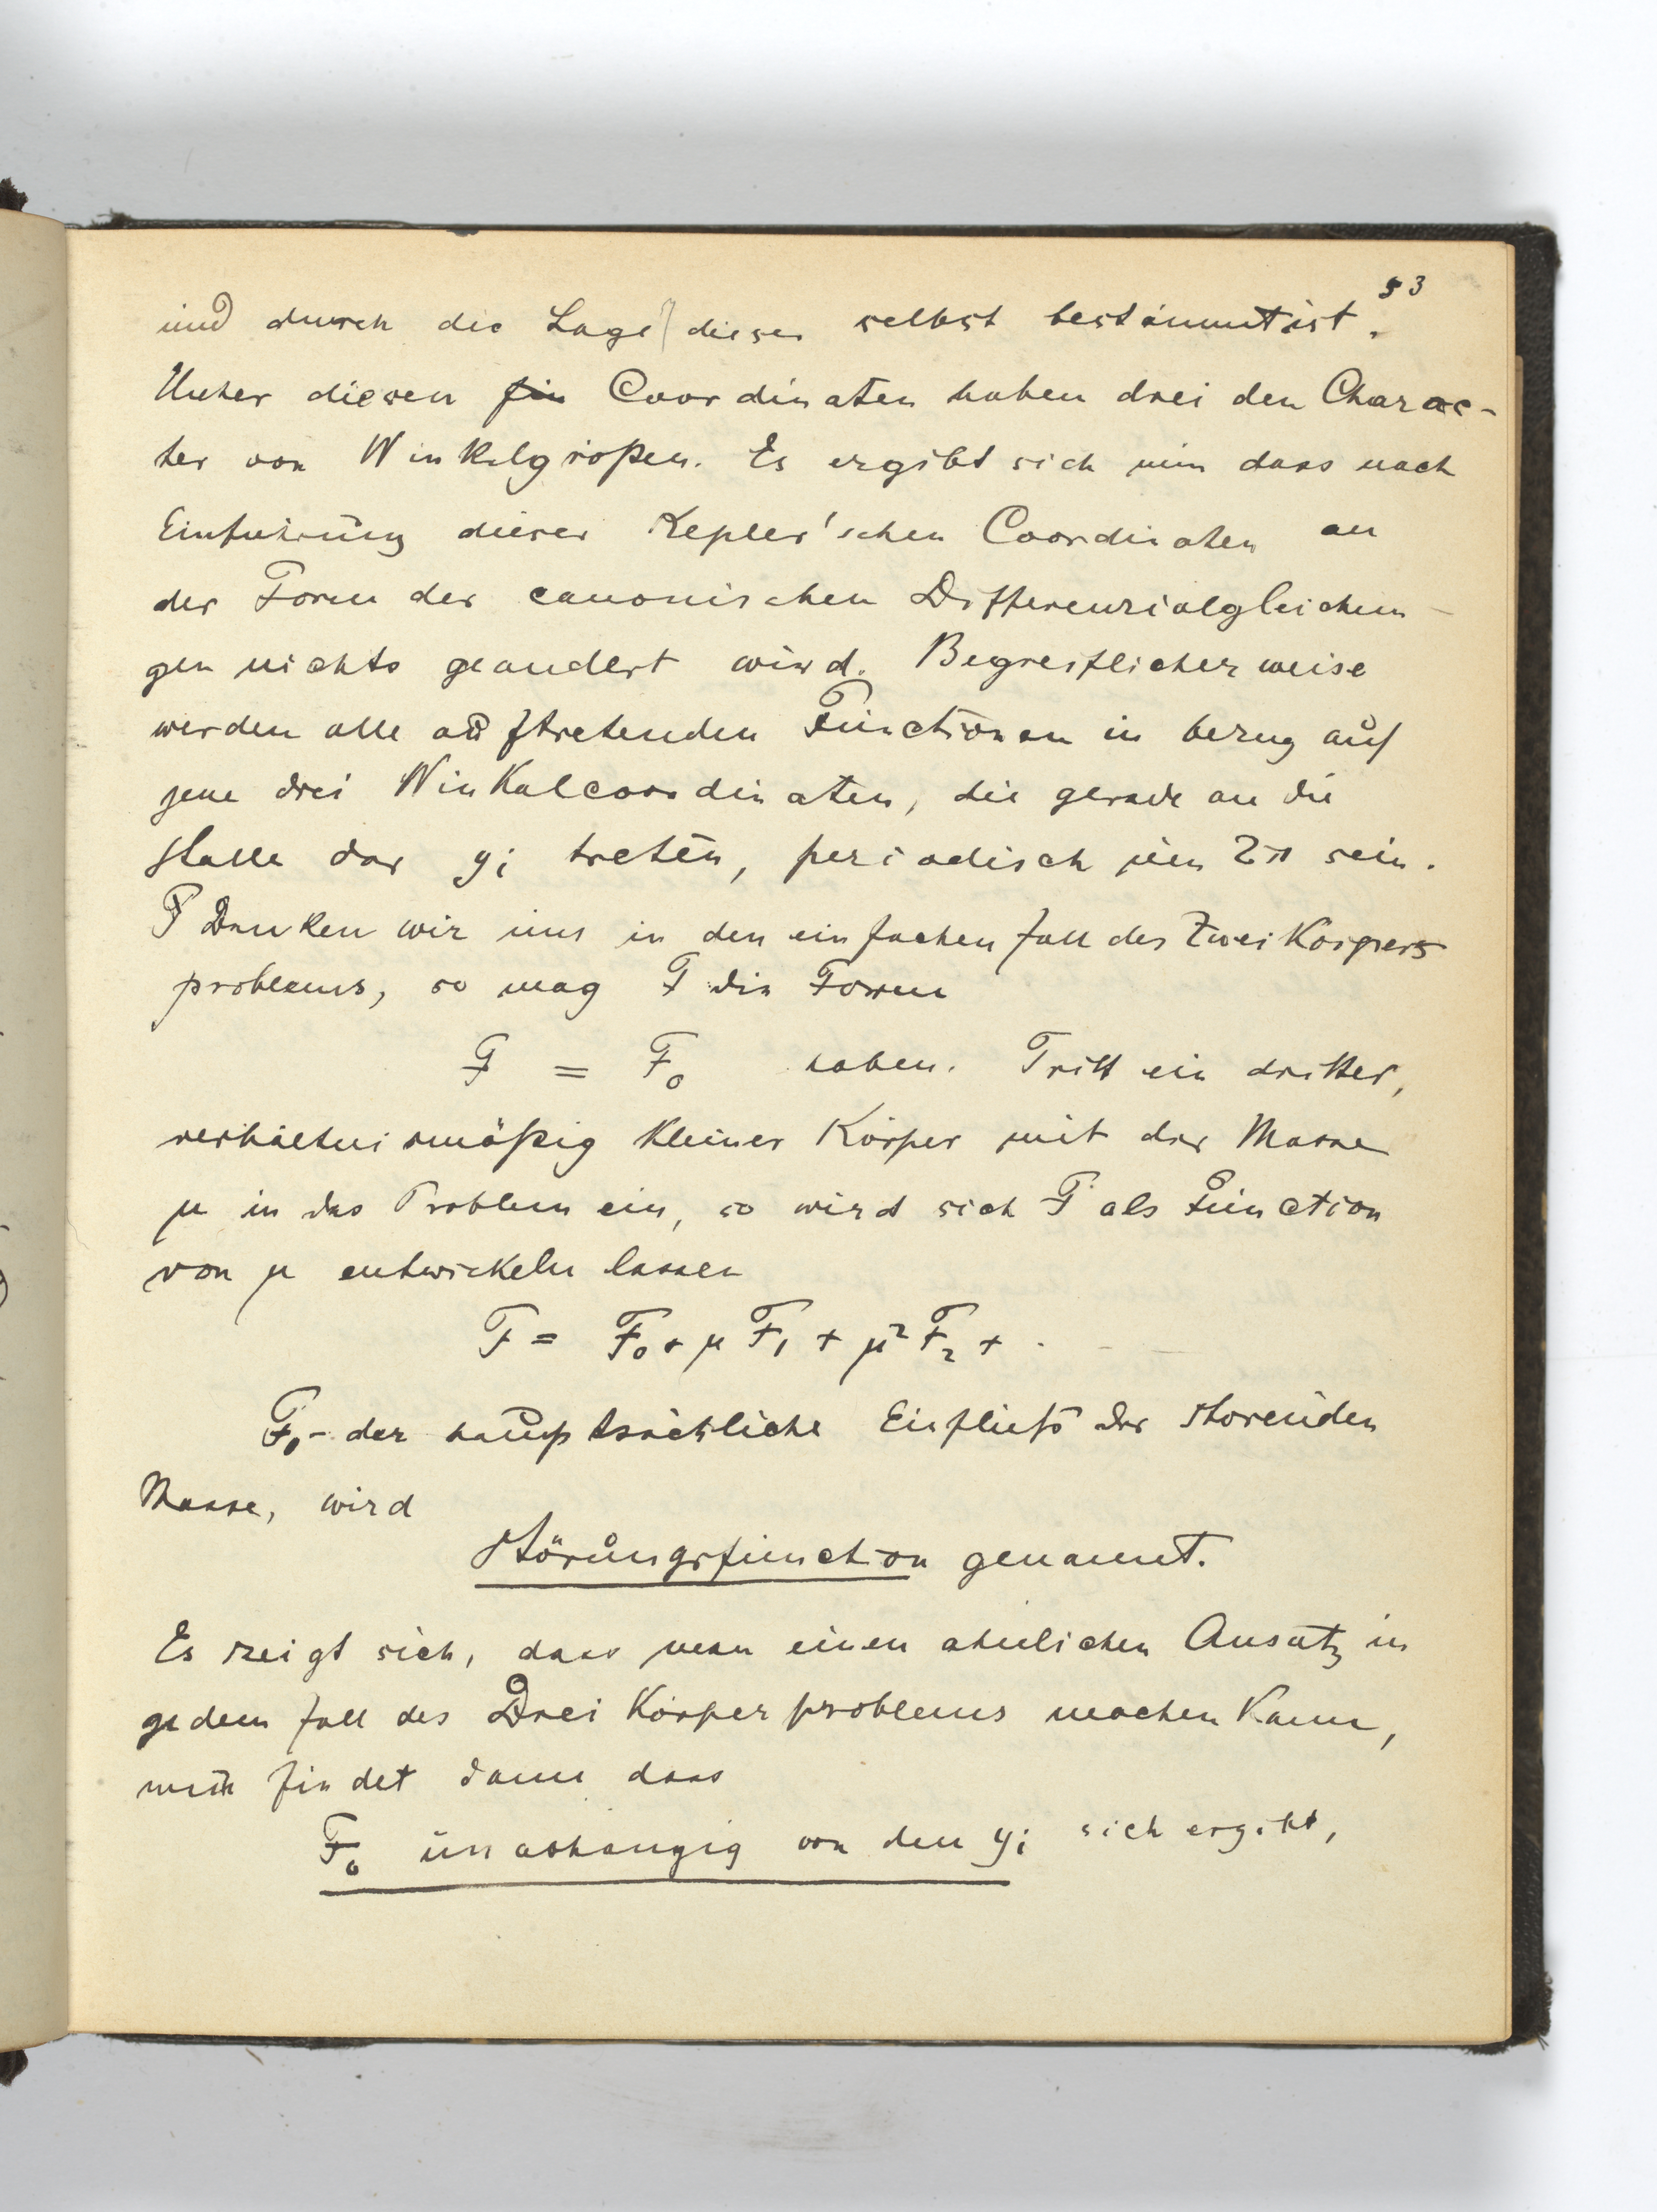 53
und durch die Lage dieser selbst bestimmt ist.
Unter diesen fün Coordinaten haben drei den Charac-
ter von Winkelgrößen. Es ergibt sich nun dass nach
Einfuhrung dieser Kepler'schen Coordinaten an
der Form der canonischen Differenzialgleichun-
gen nichts geandert wird. Begreiflicherweise
werden alle auftretenden Functionen in bezug auf
jene drei Winkelcoordinaten, die gerade an die
Stelle der yi treten, periodisch um 2π sein.
Denken wir uns in den einfachen Fall des Zweikörpers
problems, so mag F die Form
F = F₀ haben. Tritt ein dritter,
verhältnismäßig kleiner Körper mit der Masse
μ in das Problem ein, so wird sich F als Function
von μ entwickeln lassen
F = F₀ + μ F₁ + μ² F₂ + . - -
F₁ - der hauptsächliche Einfluß der storenden
Masse, wird
Störungsfunction genannt.
Es zeigt sich, dass man einen ahnlichen Ansatz in
jedem Fall des Dreikörperproblems machen kann,
man findet dann dass
F₀ unabhangig von den yi sich ergibt,